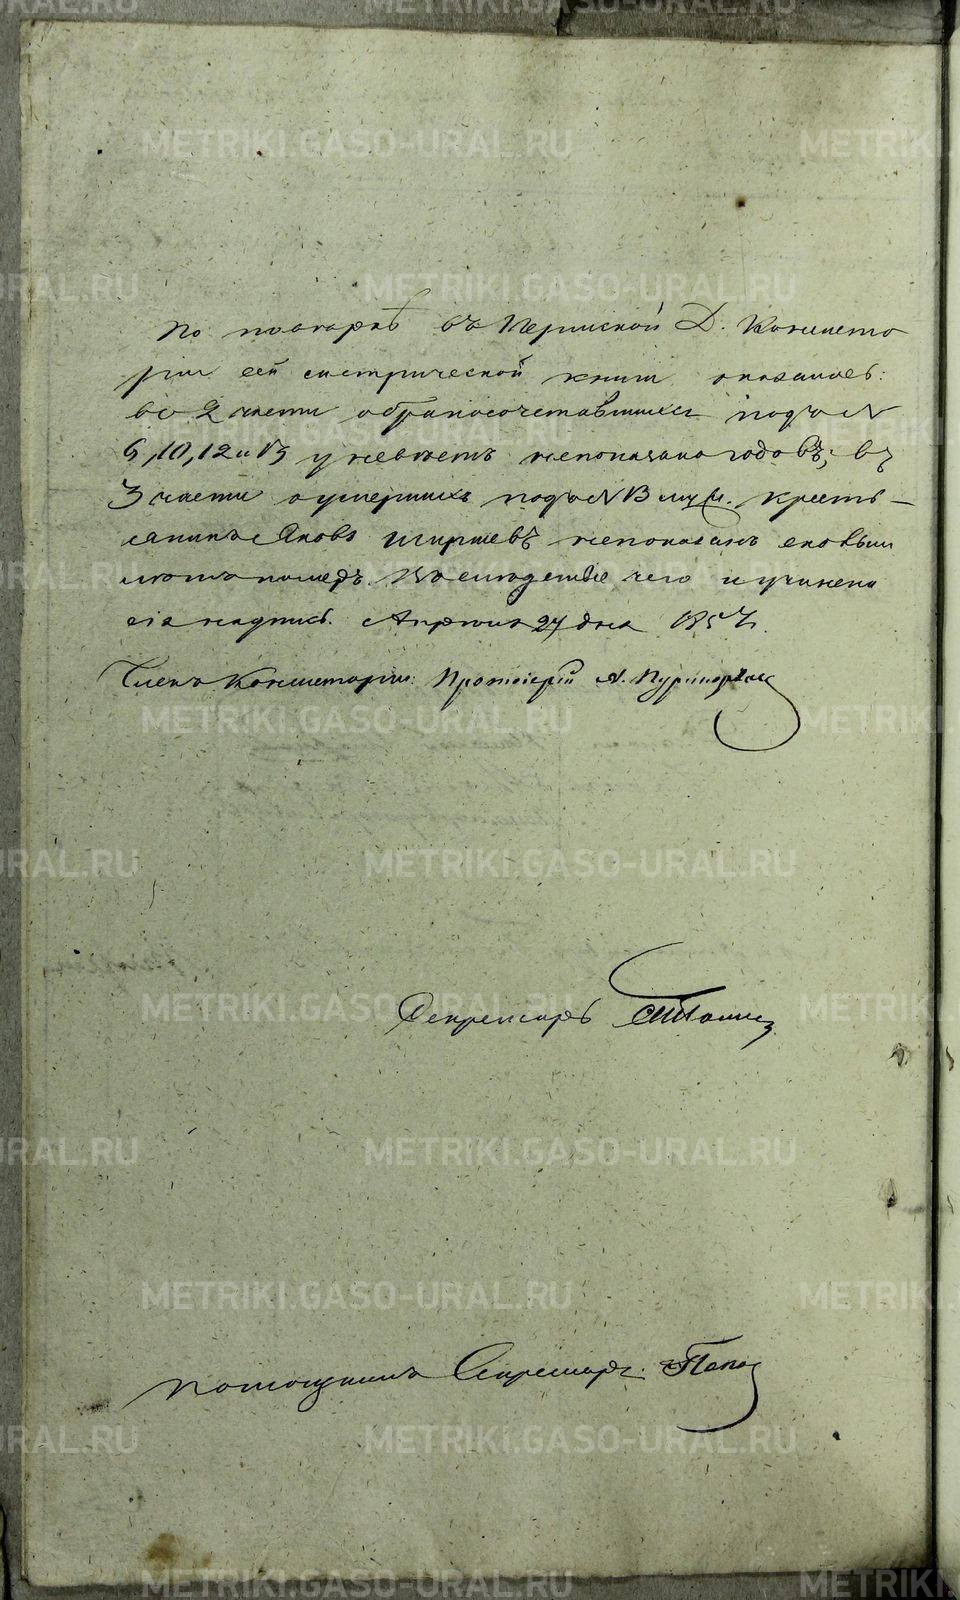 По поверкѣ въ Пермской Д. Консисто
ріи сей метрической книги оказалось:
во 2 части о бракосочетавшихся подъ N
6, 10, 12 и 13 у невѣстъ непоказано годовъ; въ
3 части о умершихъ подъ N 13 муж. кресть-
янинъ Яковъ непоказанъ сколькихъ
лѣтъ померъ. Въ слѣдствіе чего и учинена
сія надпись. Апрѣля 27 дня 1857 г.
Членъ Консисторіи: Протоіерей А.
Секретарь
Помощникъ Секретаря Попов
METRIKI.GASO-URAL.RU